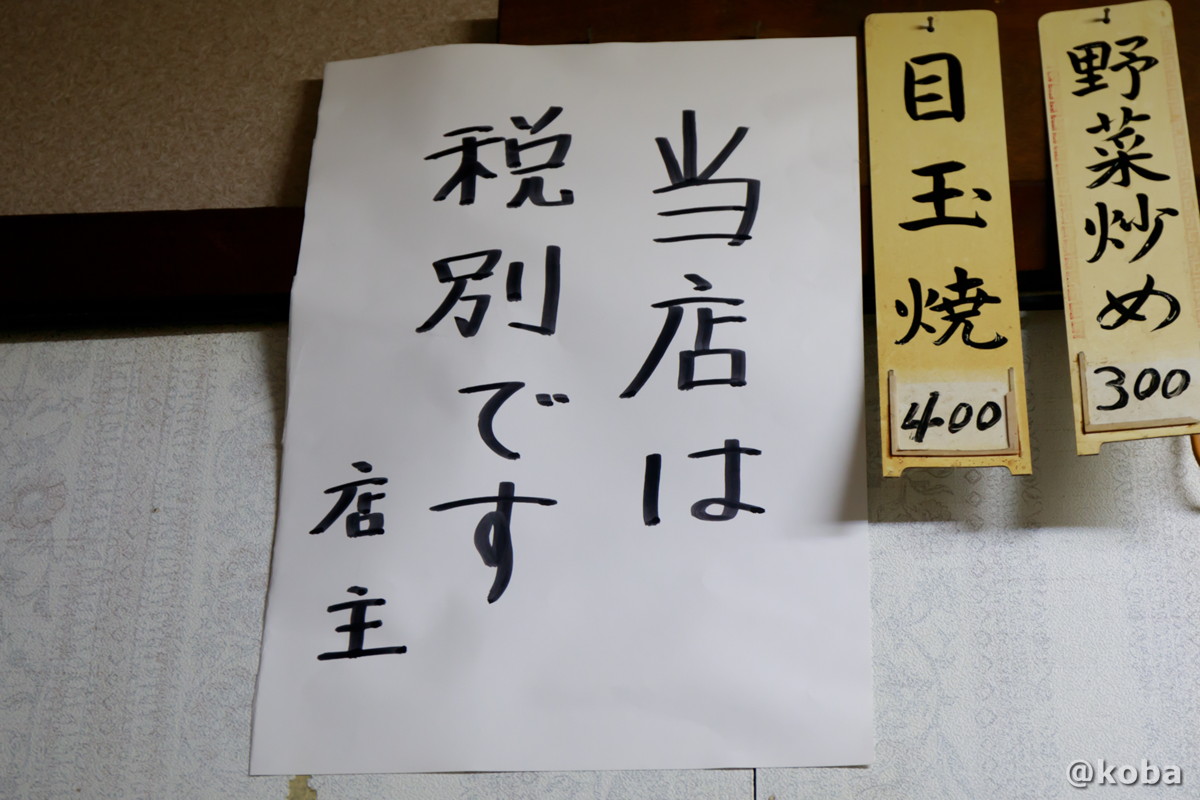 野菜炒め
300
目玉焼
400
当店は
税別です
店主
@koba